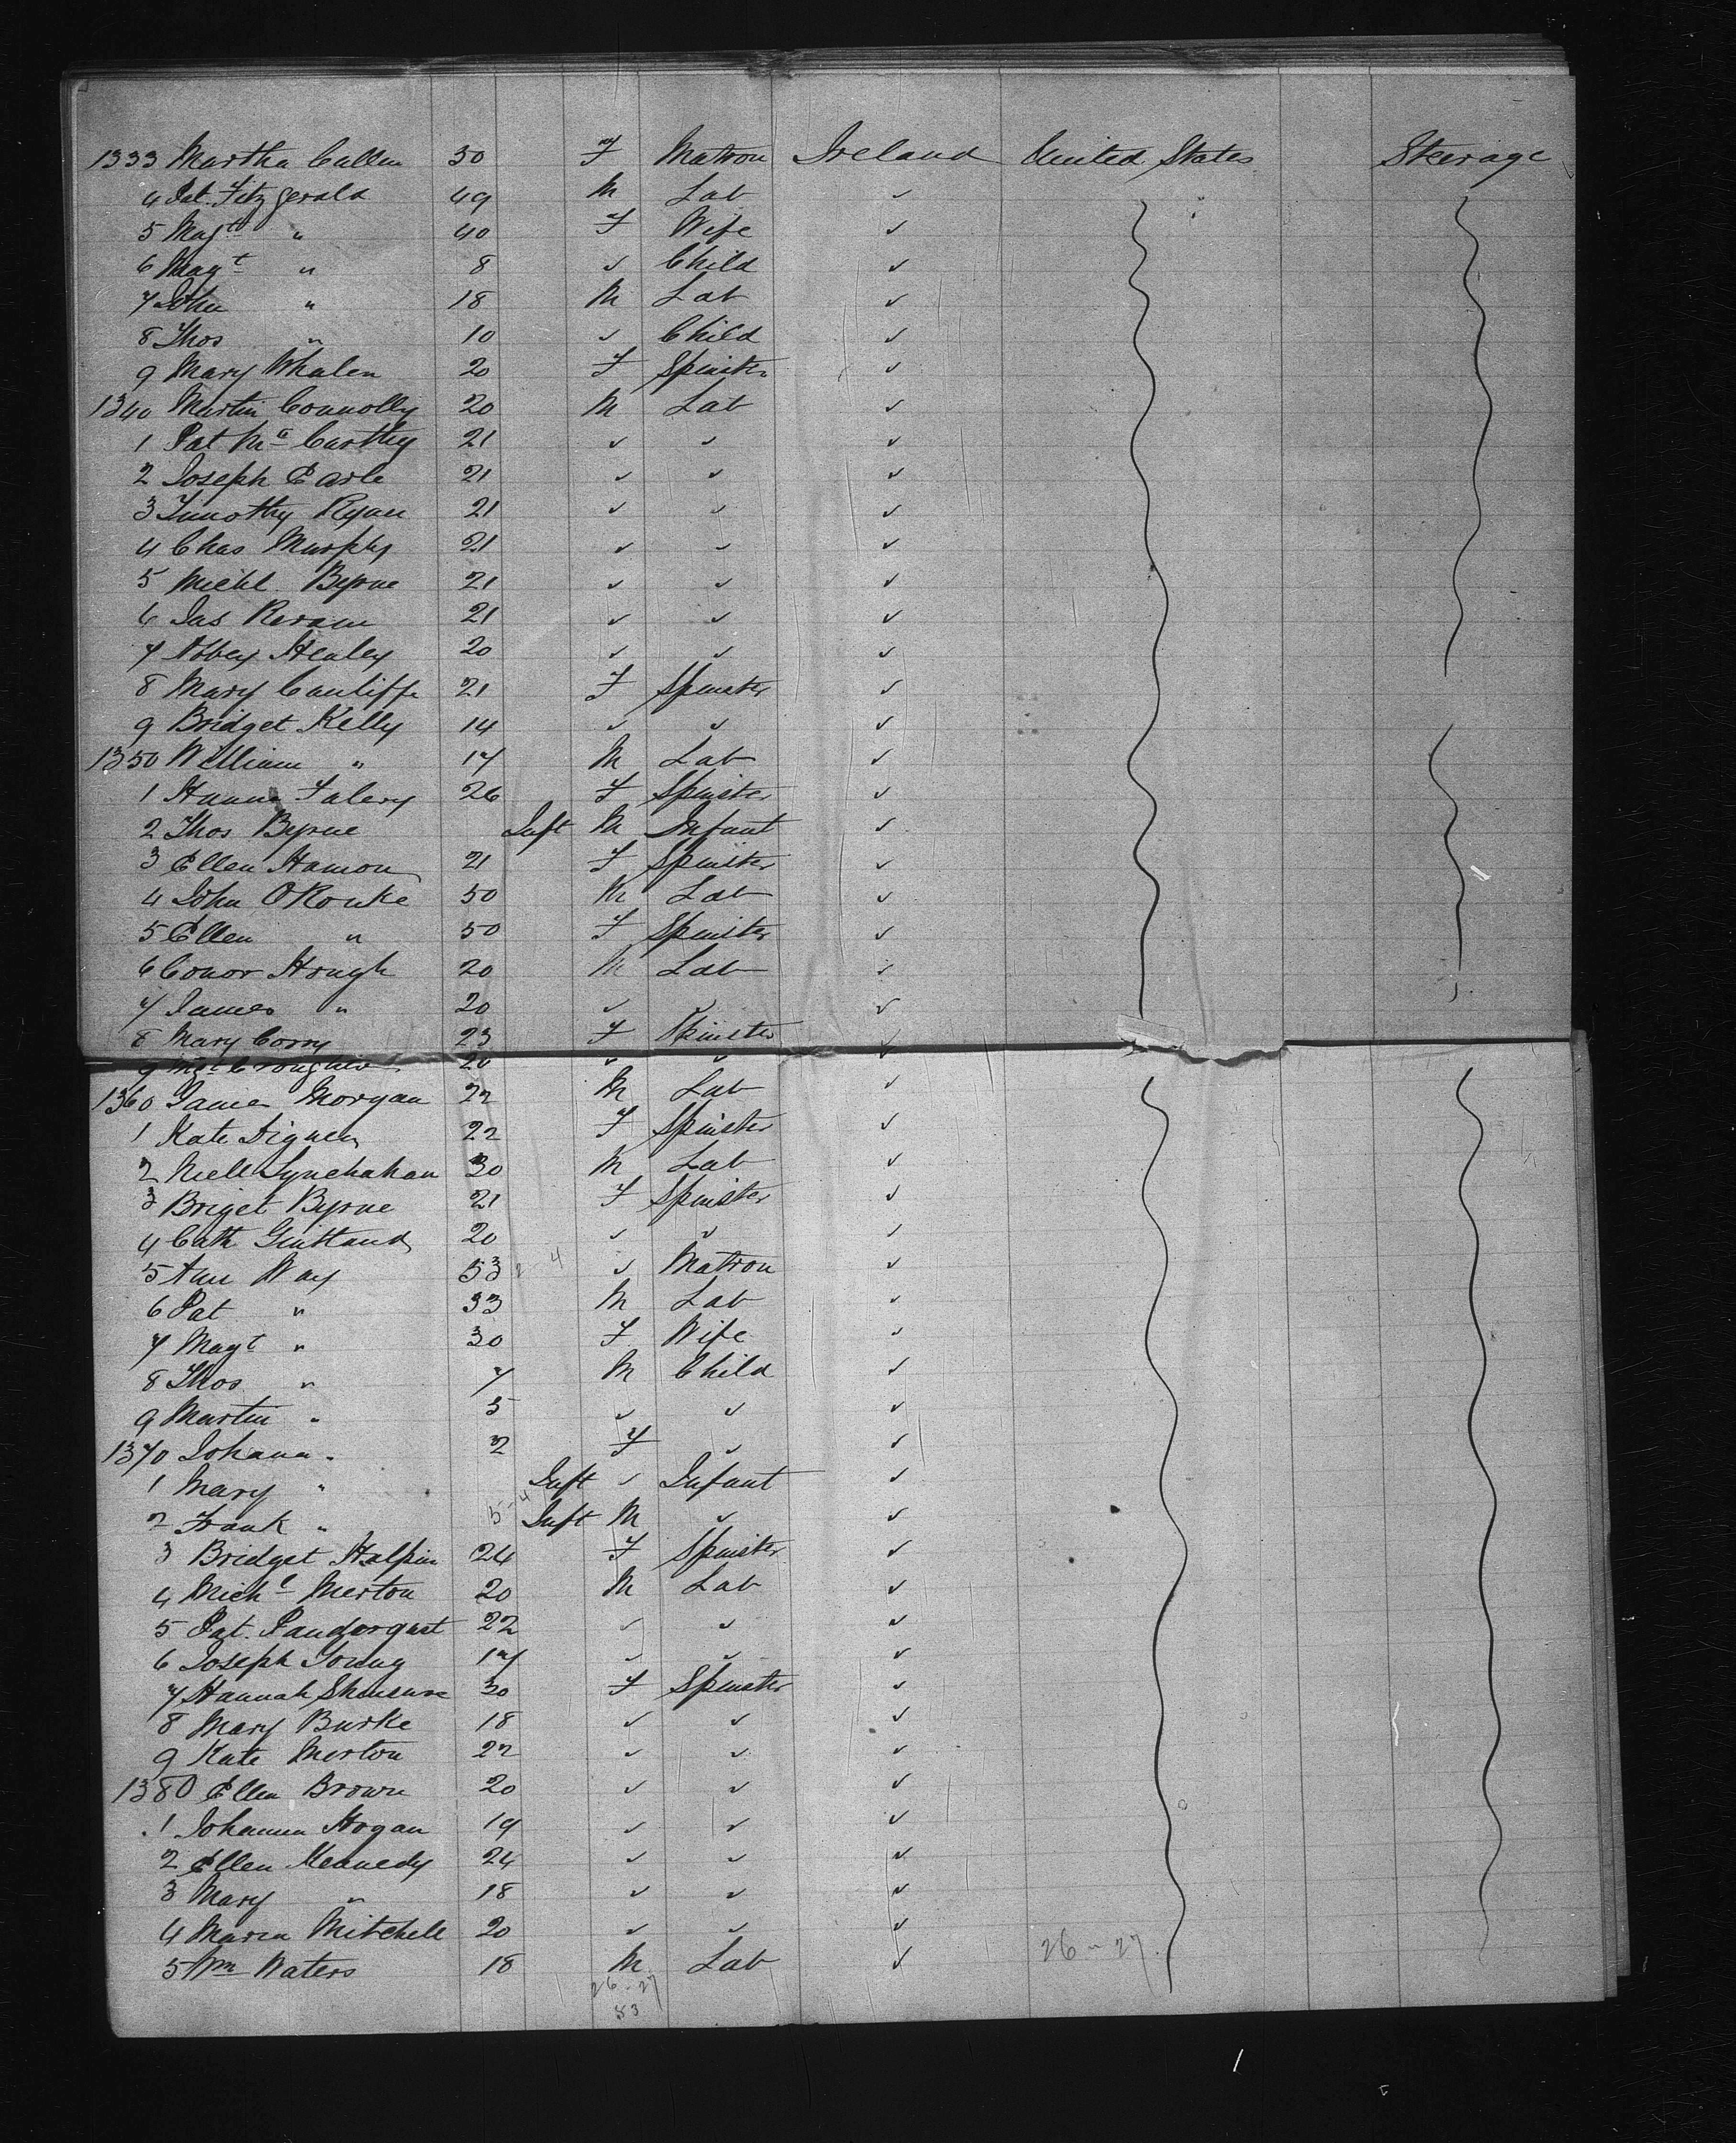 1333 Martha Cullen 50 F Matron Ireland United States Steerage
4 Pat. Fitzgerald 49 M Lab ✓
5 Magt " 40 F Wife ✓
6 Magt " 8 ✓ Child ✓
7 John " 18 M Lab ✓
8 Thos " 10 ✓ Child ✓
9 Mary Whalen 20 F Spinster ✓
1340 Martin Connolly 20 M Lab ✓
1 Pat McCarthy 21 ✓ ✓ ✓
2 Joseph Earle 21 ✓ ✓ ✓
3 Timothy Ryan 21 ✓ ✓ ✓
4 Chas Murphy 21 ✓ ✓ ✓
5 Michl Byrne 21 ✓ ✓ ✓
6 Jas 21 ✓ ✓ ✓
7 Abbey Healey 20 ✓ ✓ ✓
8 Mary Cunliffe 21 F Spinster ✓
9 Bridget Kelly 14 ✓ ✓ ✓
1350 William " 17 M Lab ✓
1 Hanna 26 F Spinster ✓
2 Thos Byrne Inft M Infant ✓
3 Ellen Hamon 21 F Spinster ✓
4 John O'Rouke 50 M Lab ✓
5 Ellen " 50 F Spinster ✓
6 Conor Hough 20 M Lab ✓
7 James " 20 ✓ ✓ ✓
8 Mary Corry 23 F Spinster ✓
9 Mgt 20 ✓ ✓ ✓
1360 James Morgan 22 M Lab ✓
1 Kate Dignen 22 F Spinster ✓
2 Niell Lynchahan 30 M Lab ✓
3 Briget Byrne 21 F Spinster ✓
4 Cath 20 ✓ ✓ ✓
5 Ann Way 53 ✓ Matron ✓
6 Pat " 33 M Lab ✓
7 Magt " 30 F Wife ✓
8 Thos " 7 M Child ✓
9 Martin " 5 ✓ ✓ ✓
1370 Johana " 2 F ✓ ✓
1 Mary " Inft ✓ Infant ✓
2 Frank " 5-4 Inft M ✓ ✓
3 Bridget Halpin 24 F Spinster ✓
4 Michl Merton 20 M Lab ✓
5 Pat. Pandorgast 22 ✓ ✓ ✓
6 Joseph Young 17 ✓ ✓ ✓
7 Hannah 30 F Spinster ✓
8 Mary Burke 18 ✓ ✓ ✓
9 Kate Merton 22 ✓ ✓ ✓
1380 Ellen Brown 20 ✓ ✓ ✓
1 Johanna Hogan 19 ✓ ✓ ✓
2 Ellen Kennedy 24 ✓ ✓ ✓
3 Mary " 18 ✓ ✓ ✓
4 Maria Mitchell 20 ✓ ✓ ✓
5 Wm Waters 18 M Lab ✓ 26-27
26-27
53